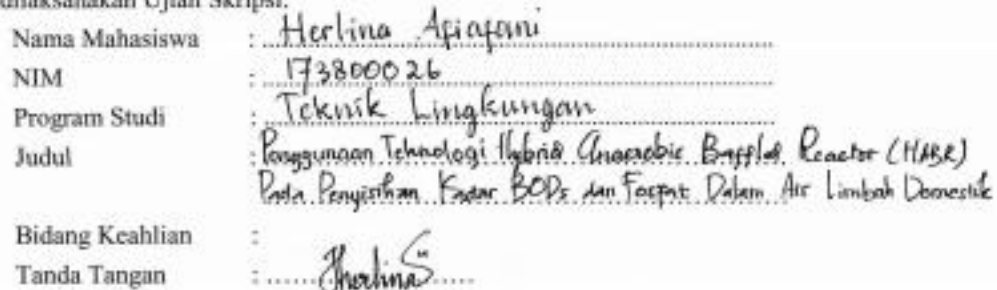 dilaksanakan Ujian Skripsi.
Nama Mahasiswa : Herlina Apiapani
NIM : 173800026
Program Studi : Teknik Lingkungan
Judul : Penggunaan Teknologi Hybrid Anaerobic Baffled Reactor (HABR)
Pada Penyisihan Kadar BOD5 dan Fosfat Dalam Air Limbah Domestik
Bidang Keahlian :
Tanda Tangan : Herlina